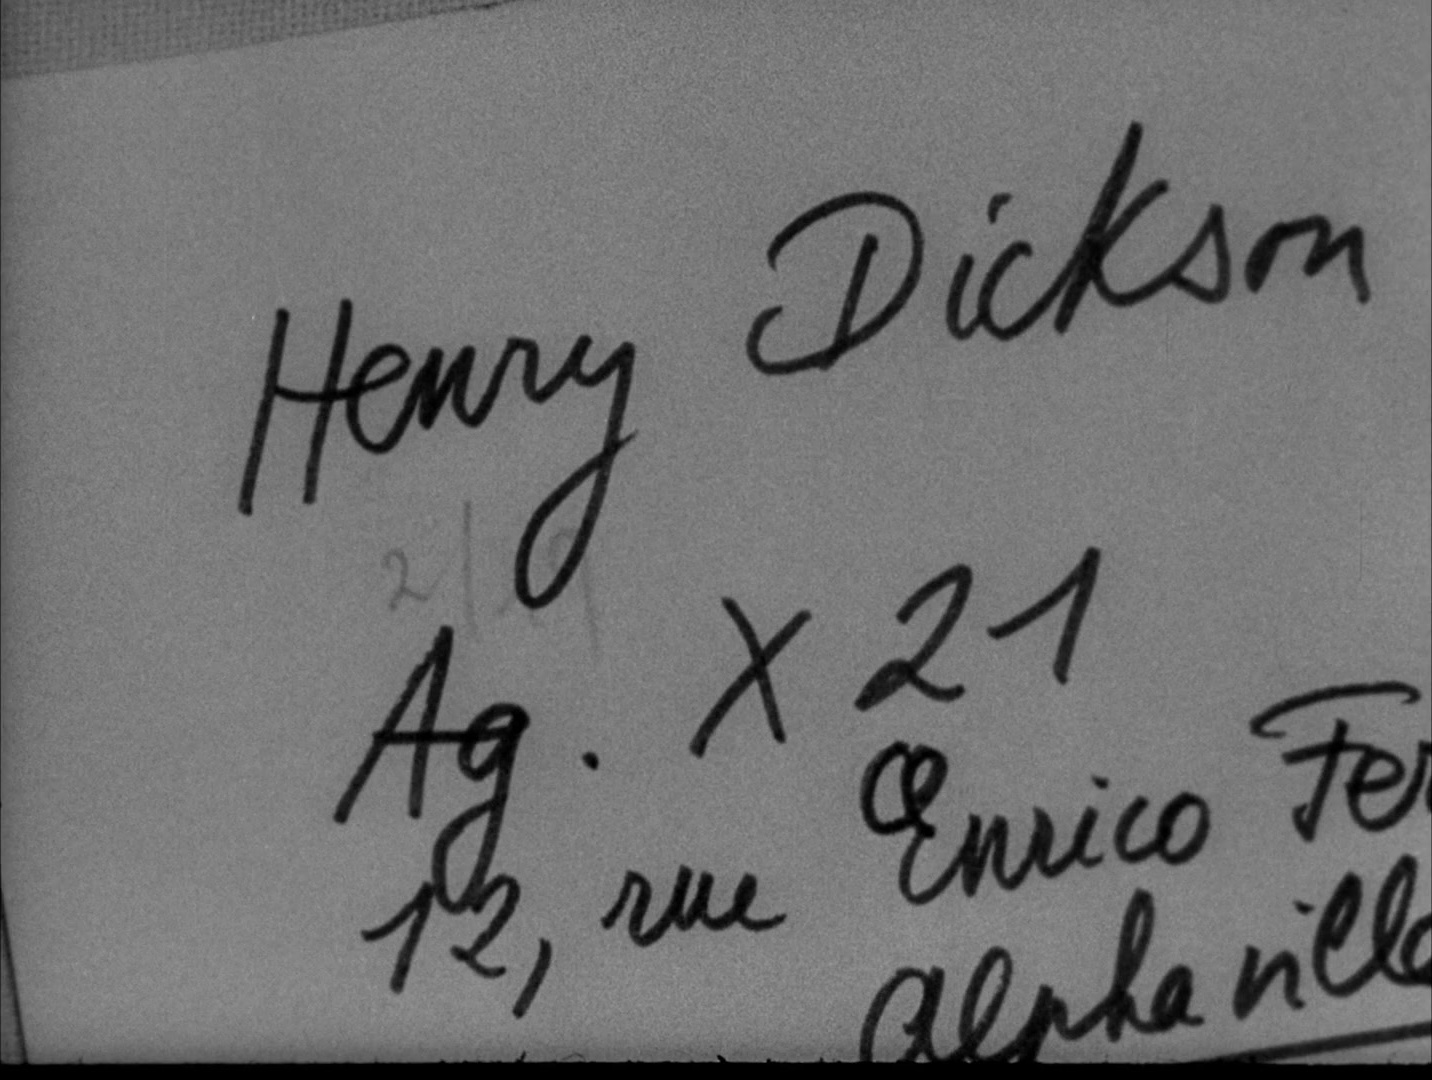 Henry Dickson
Ag. X21
12, rue Enrico Fer
Alphaville